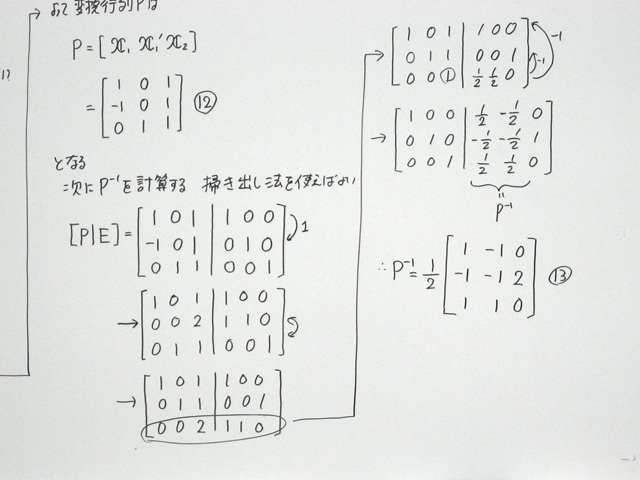 → よって変換行列Pは
P = [ x₁ x₁' x₂ ]
= [ 1 0 1
-1 0 1
0 1 1 ] ⑫
となる
次にP⁻¹を計算する 掃き出し法を使えばよい
[P|E] = [ 1 0 1 | 1 0 0
-1 0 1 | 0 1 0
0 1 1 | 0 0 1 ] 1
→ [ 1 0 1 | 1 0 0
0 0 2 | 1 1 0
0 1 1 | 0 0 1 ]
→ [ 1 0 1 | 1 0 0
0 1 1 | 0 0 1
0 0 2 | 1 1 0 ]
→ [ 1 0 1 | 1 0 0
0 1 1 | 0 0 1
0 0 ① | 1/2 1/2 0 ] -1 -1
→ [ 1 0 0 | 1/2 -1/2 0
0 1 0 | -1/2 -1/2 1
0 0 1 | 1/2 1/2 0 ]
P⁻¹
∴ P⁻¹ = 1/2 [ 1 -1 0
-1 -1 2
1 1 0 ] ⑬